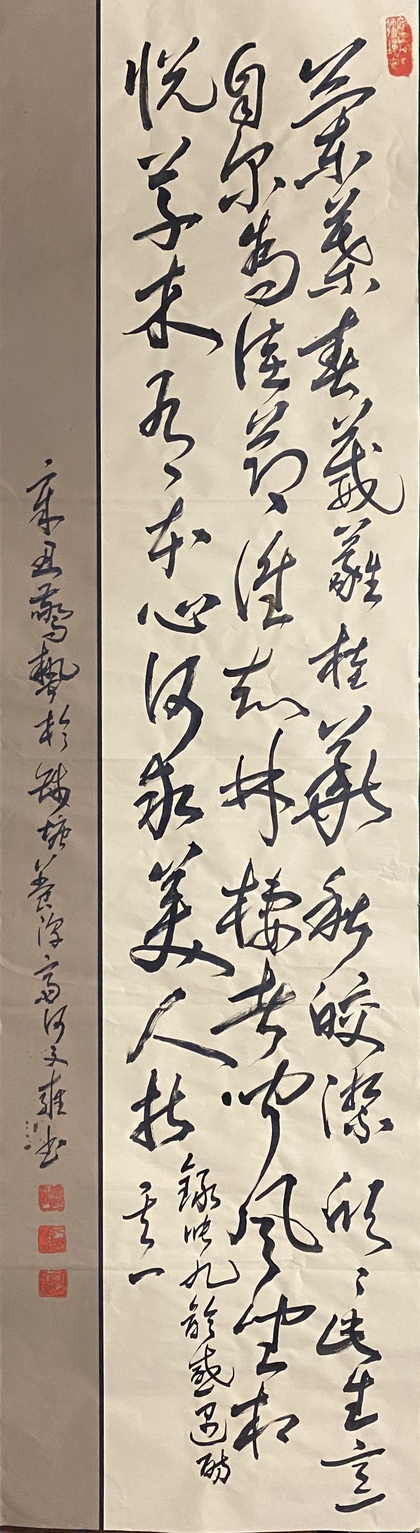 蘭葉春葳蕤桂華秋皎潔欣〻此生意
自尔為佳節誰知林棲者聞風坐相
悅草木有本心何求美人折
錄張九齡感遇詩
其一
辛丑驚蟄於錢塘養何文雍书